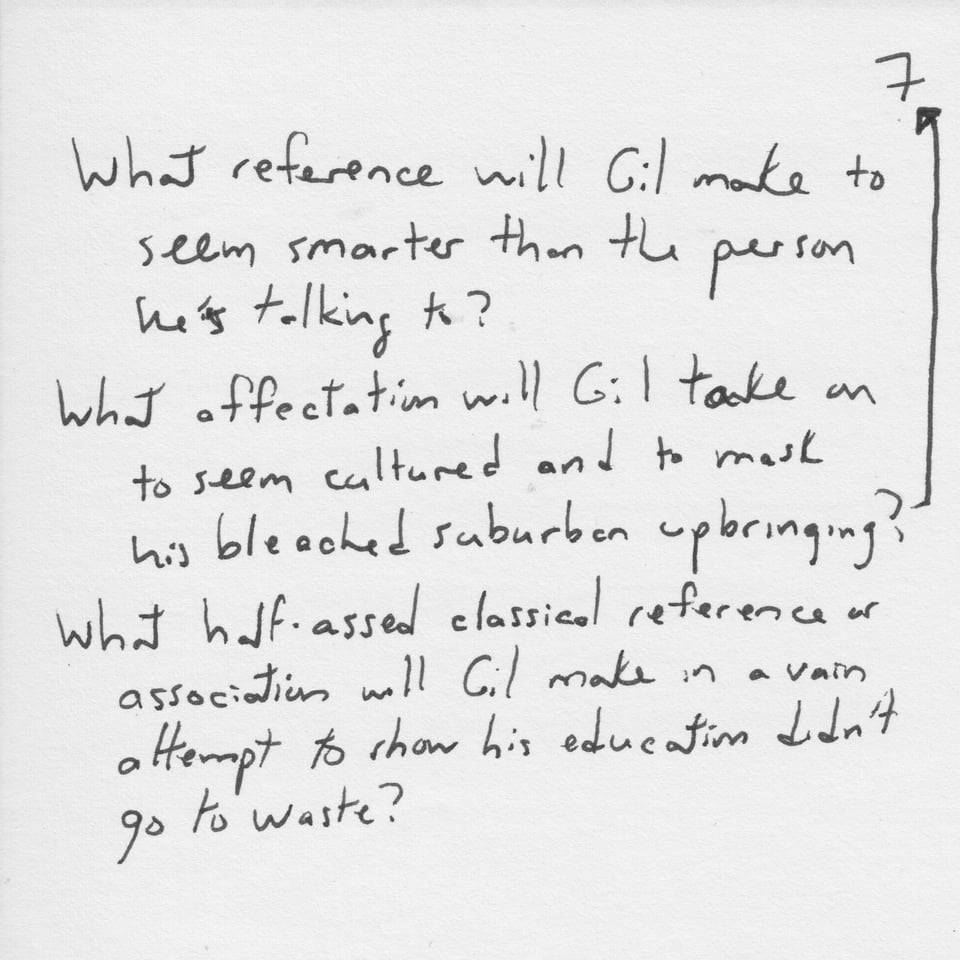 7
What reference will Gil make to
seem smarter than the person
he's talking to?
What affectation will Gil take on
to seem cultured and to mask
his bleached suburban upbringing?
What half-assed classical reference or
association will Gil make in a vain
attempt to show his education didn't
go to waste?